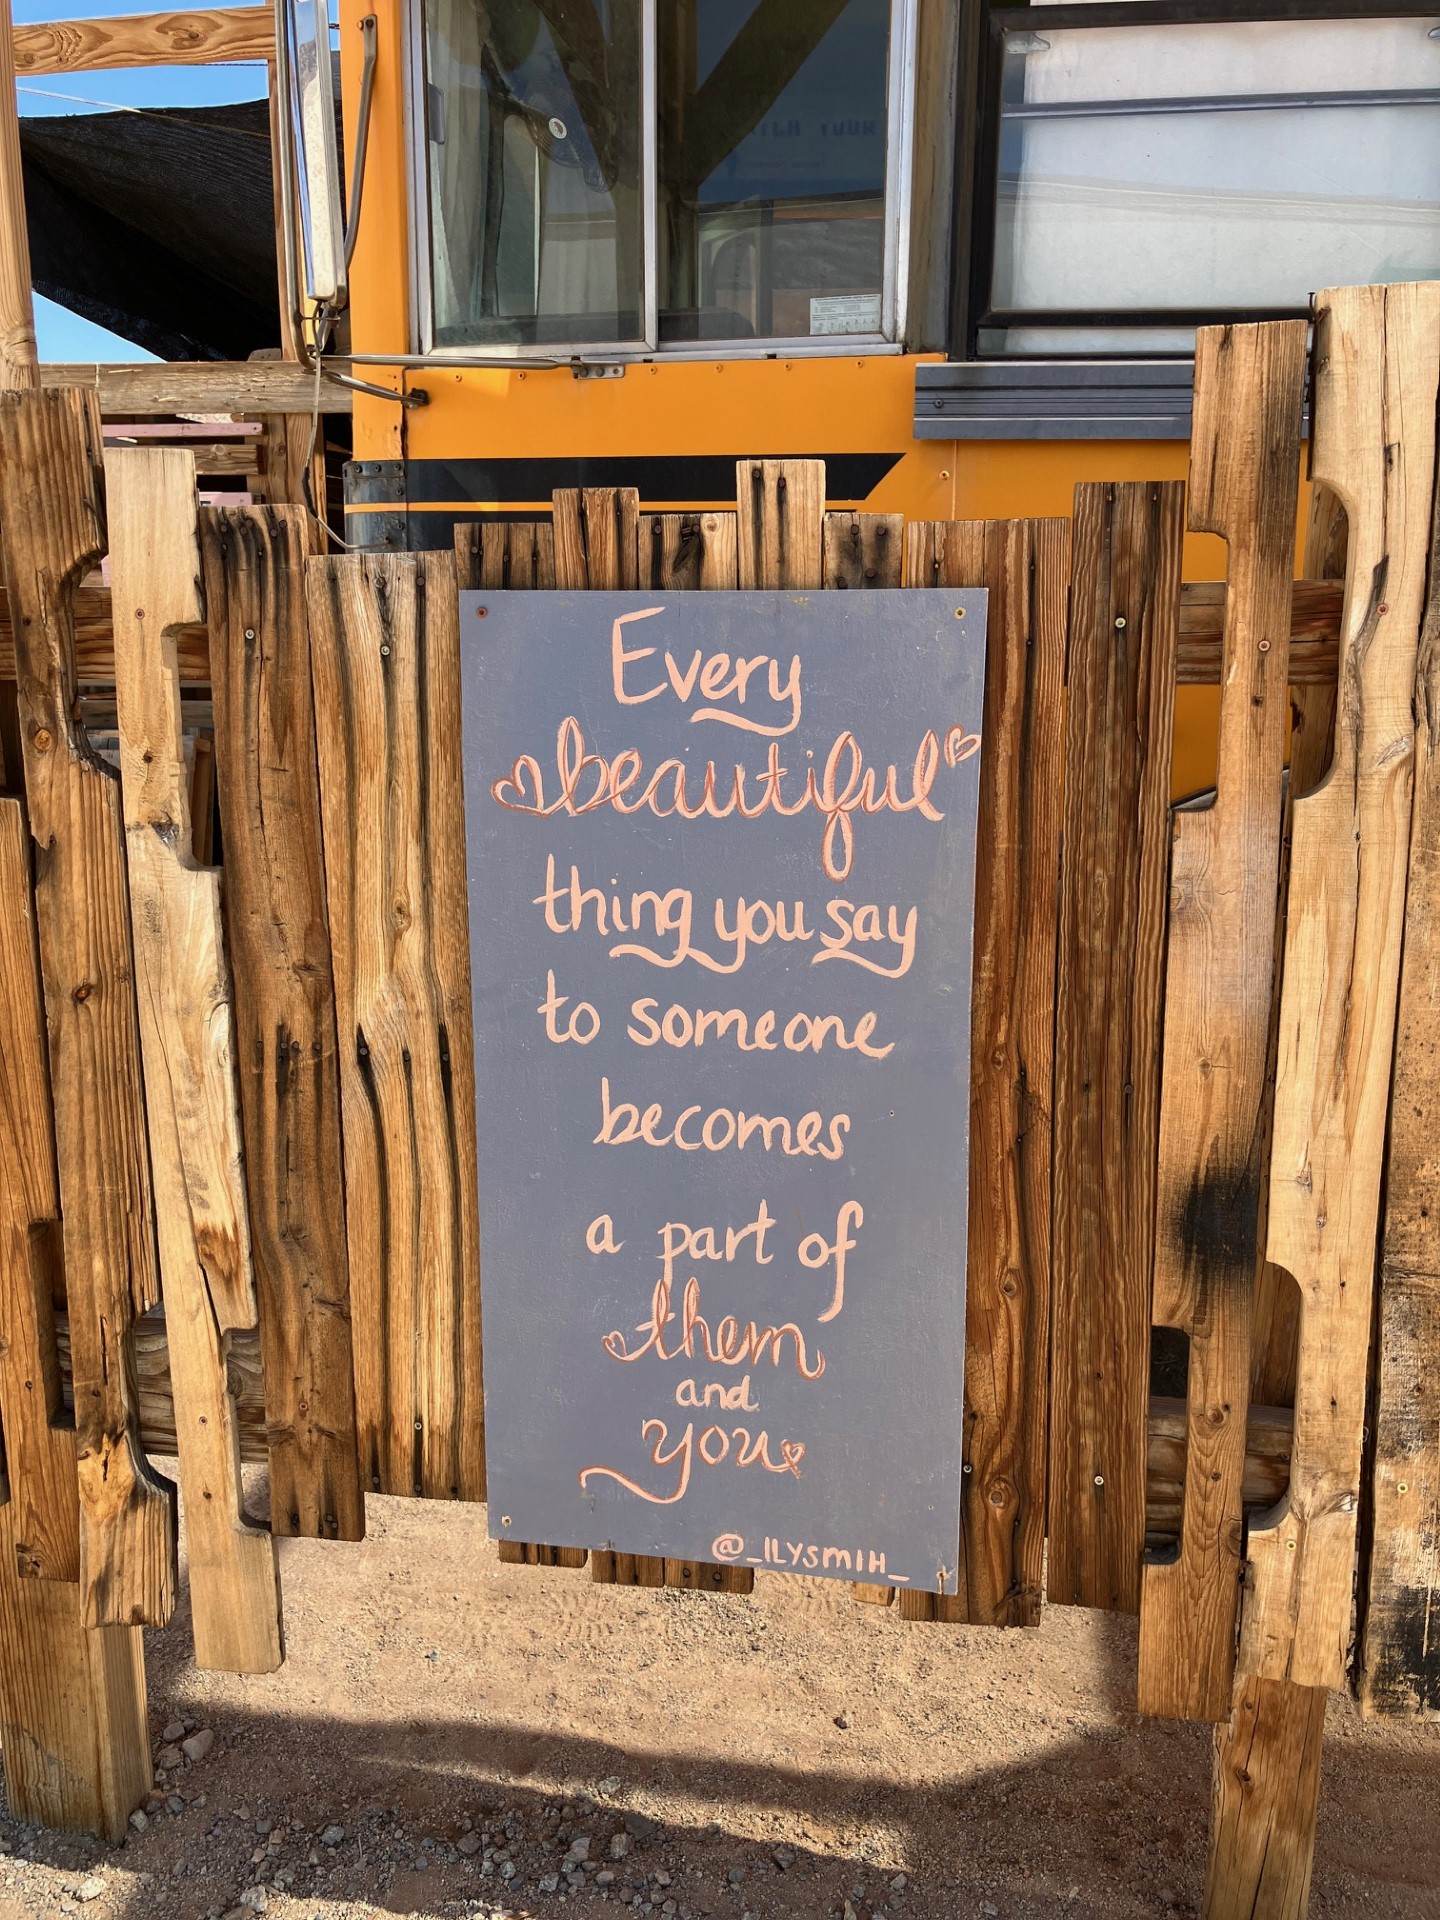 Every
beautiful
thing you say
to someone
becomes
a part of
them
and
you
@_ILYSMIH_